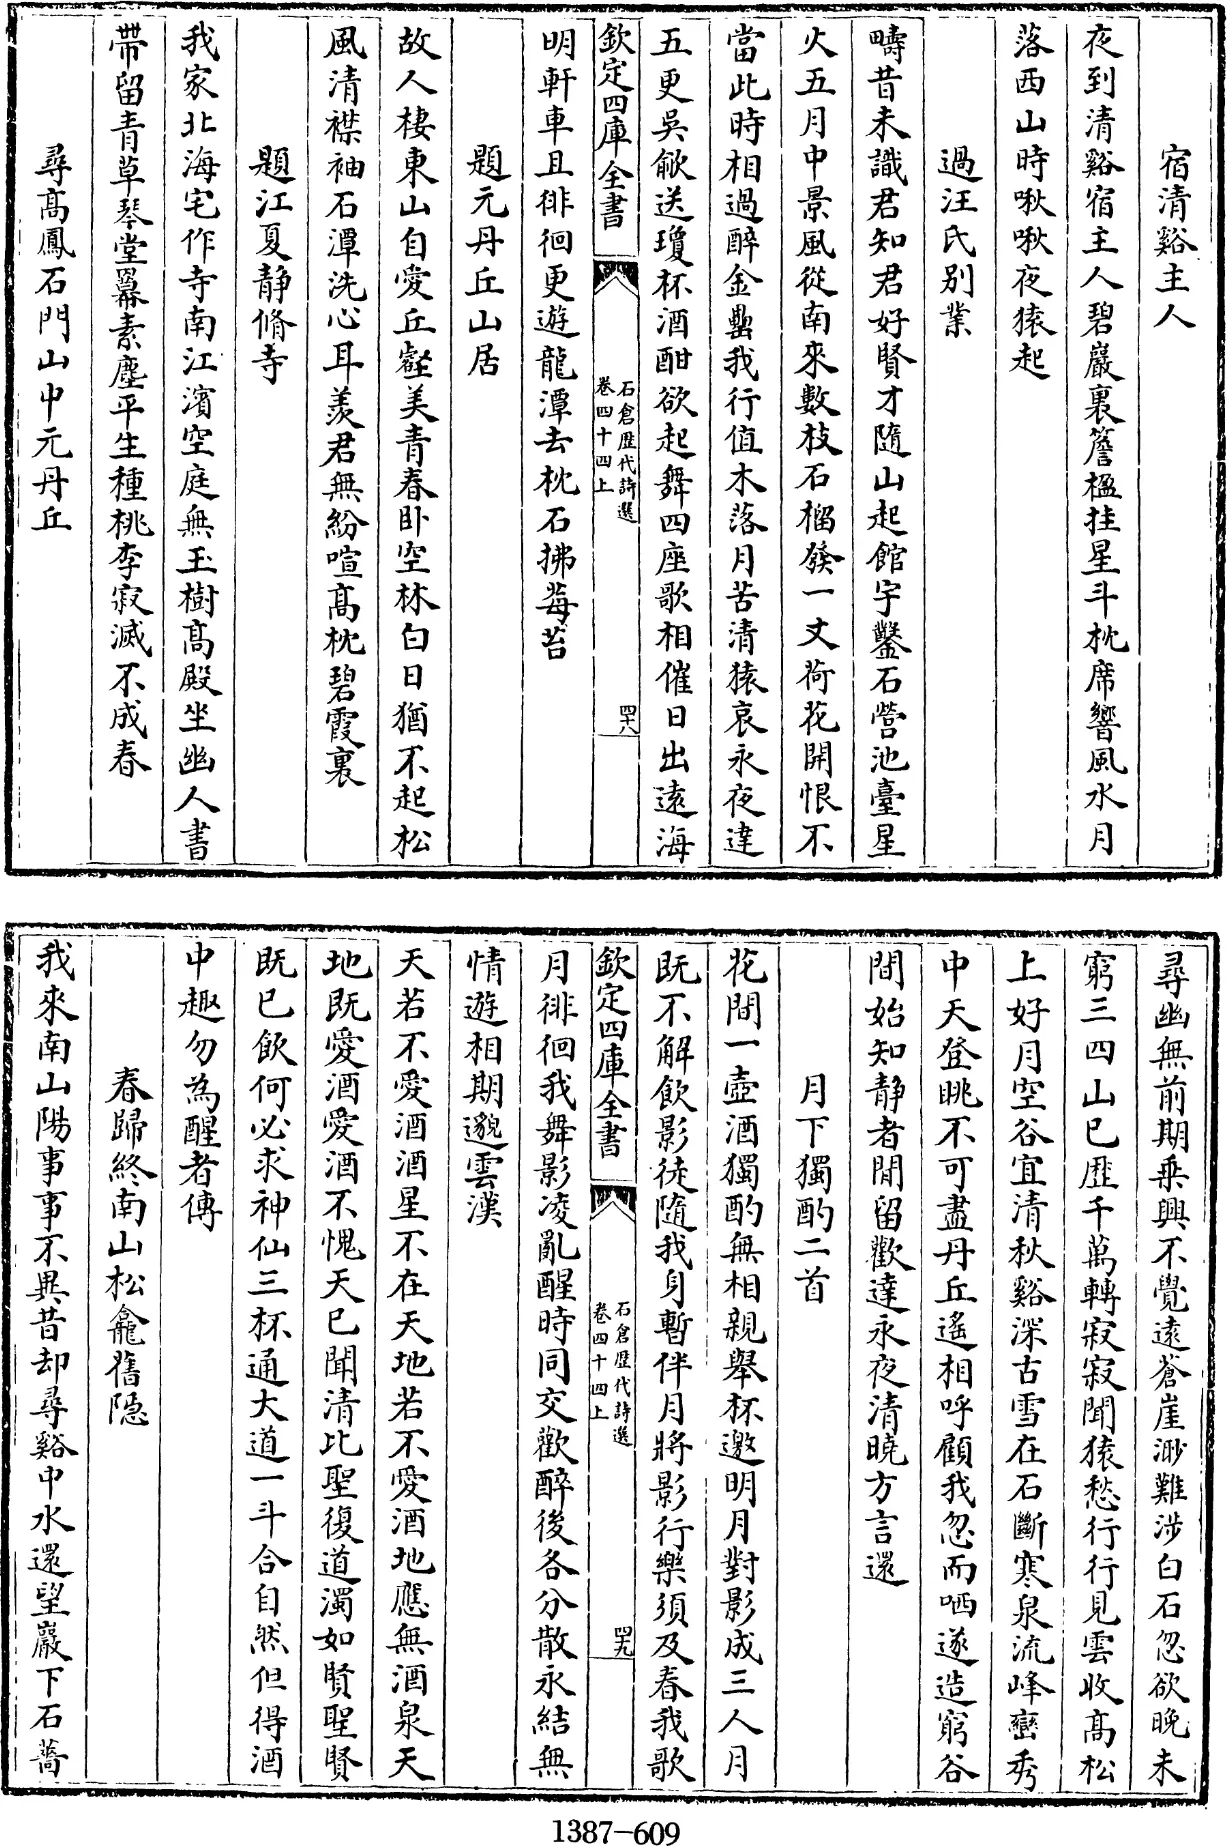 宿清谿主人
夜到清谿宿主人碧巖裏簷楹挂星斗枕席響風水月
落西山時啾啾夜猿起
過汪氏别業
疇昔未識君知君好賢才隨山起館宇鑿石營池臺星
火五月中景風從南來數枝石榴發一丈荷花開恨不
當此時相過醉金罍我行值木落月苦清猿哀永夜達
五更吳歈送瓊杯酒酣欲起舞四座歌相催日出遠海
欽定四庫全書
石倉歴代詩選
卷四十四上
四十八
明軒車且徘徊更遊龍潭去枕石拂莓苔
題元丹丘山居
故人棲東山自愛丘壑美青春卧空林白日猶不起松
風清襟袖石潭洗心耳羨君無紛喧髙枕碧霞裏
題江夏静脩寺
我家北海宅作寺南江濱空庭無玉樹髙殿坐幽人書
帶留青草琴堂羃素塵平生種桃李寂滅不成春
尋髙鳳石門山中元丹丘
尋幽無前期乘興不覺遠蒼崖渺難涉白石忽欲晚未
窮三四山已歴千萬轉寂寂聞猿愁行行見雲收髙松
上好月空谷宜清秋谿深古雪在石斷寒泉流峰巒秀
中天登眺不可盡丹丘遙相呼顧我忽而哂遂造窮谷
間始知静者閒留歡達永夜清曉方言還
月下獨酌二首
花間一壺酒獨酌無相親舉杯邀明月對影成三人月
既不解飲影徒隨我身暫伴月將影行樂須及春我歌
欽定四庫全書
石倉歴代詩選
卷四十四上
四十九
月徘徊我舞影凌亂醒時同交歡醉後各分散永結無
情遊相期邈雲漢
天若不愛酒酒星不在天地若不愛酒地應無酒泉天
地既愛酒愛酒不愧天已聞清比聖復道濁如賢聖賢
既已飲何必求神仙三杯通大道一斗合自然但得酒
中趣勿為醒者傳
春歸終南山松龕舊隱
我來南山陽事事不異昔却尋谿中水還望巖下石薔
1387-609